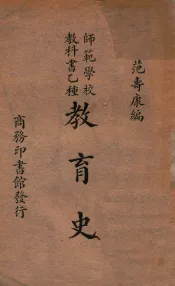 范壽康編
師範學校
教科書乙種
教育史
商務印書館發行